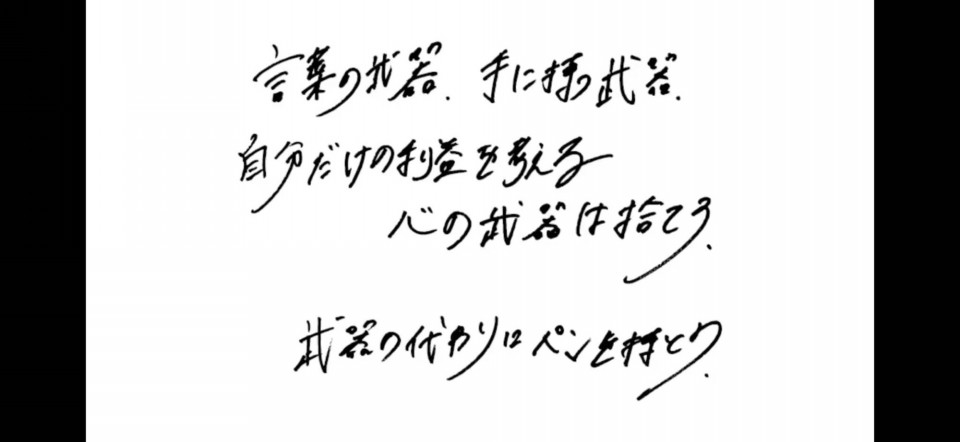 言葉の武器、手に持つ武器、
自分だけの利益を考える
心の武器は捨てろ、
武器の代わりにペンを持とう、